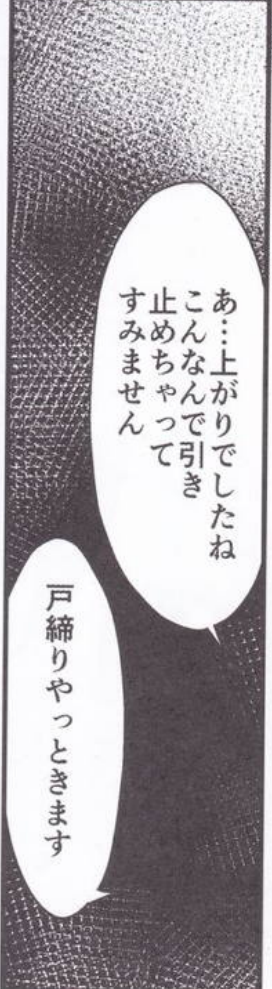 あ…上がりでしたね
こんなんで引き
止めちゃって
すみません
戸締りやっときます